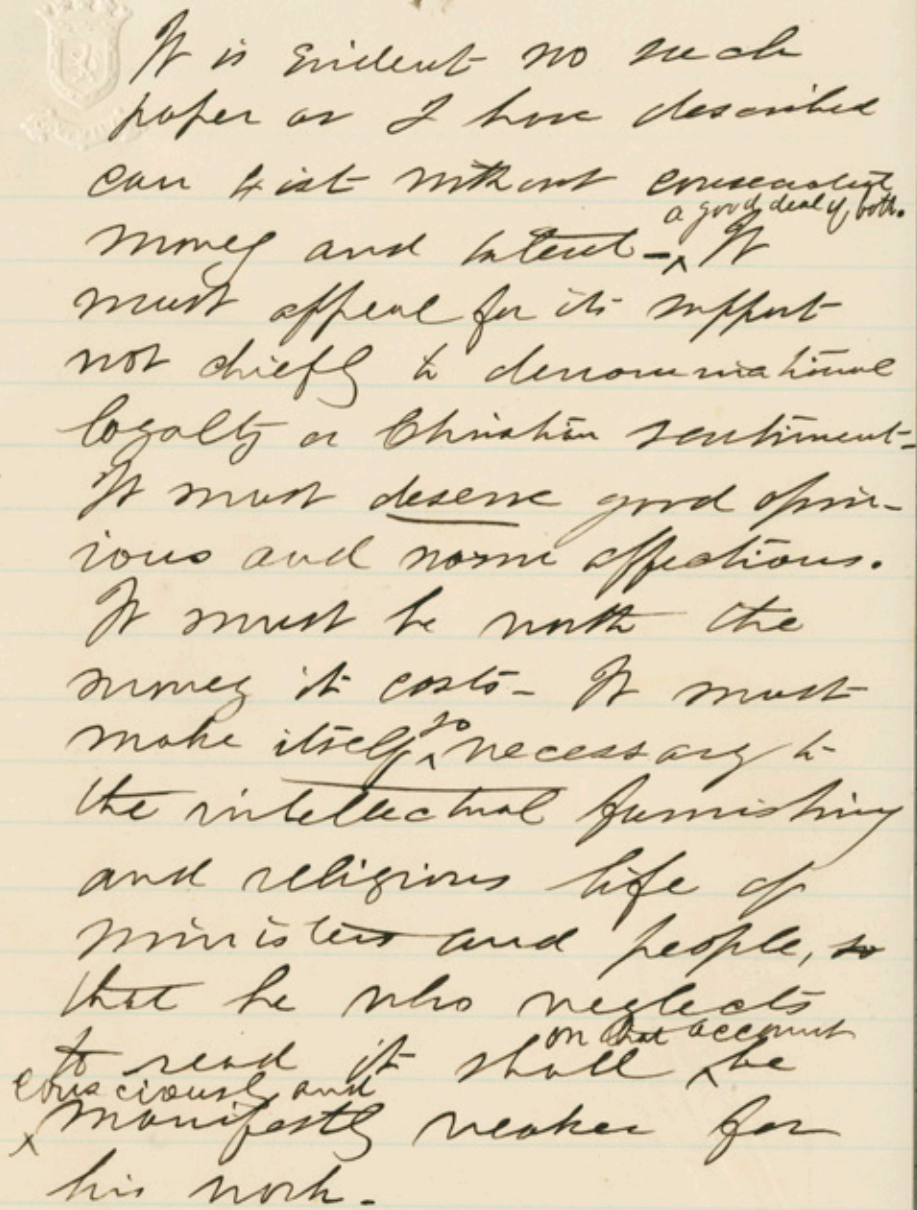 It is evident no such
paper as I have described
can exist without consecrated
a good deal of both.
money and talent - ^ It
must appeal for its support
not chiefly to denominational
loyalty or Christian sentiment-
It must deserve good opin-
ions and warm affections.
It must be worth the
money it costs - It must
so
make itself ^ necessary to
the intellectual furnishing
and religious life of
ministers and people, so
that he who neglects
on that account
to read it shall ^ be
consciously and
^ manifestly weaker for
his work -